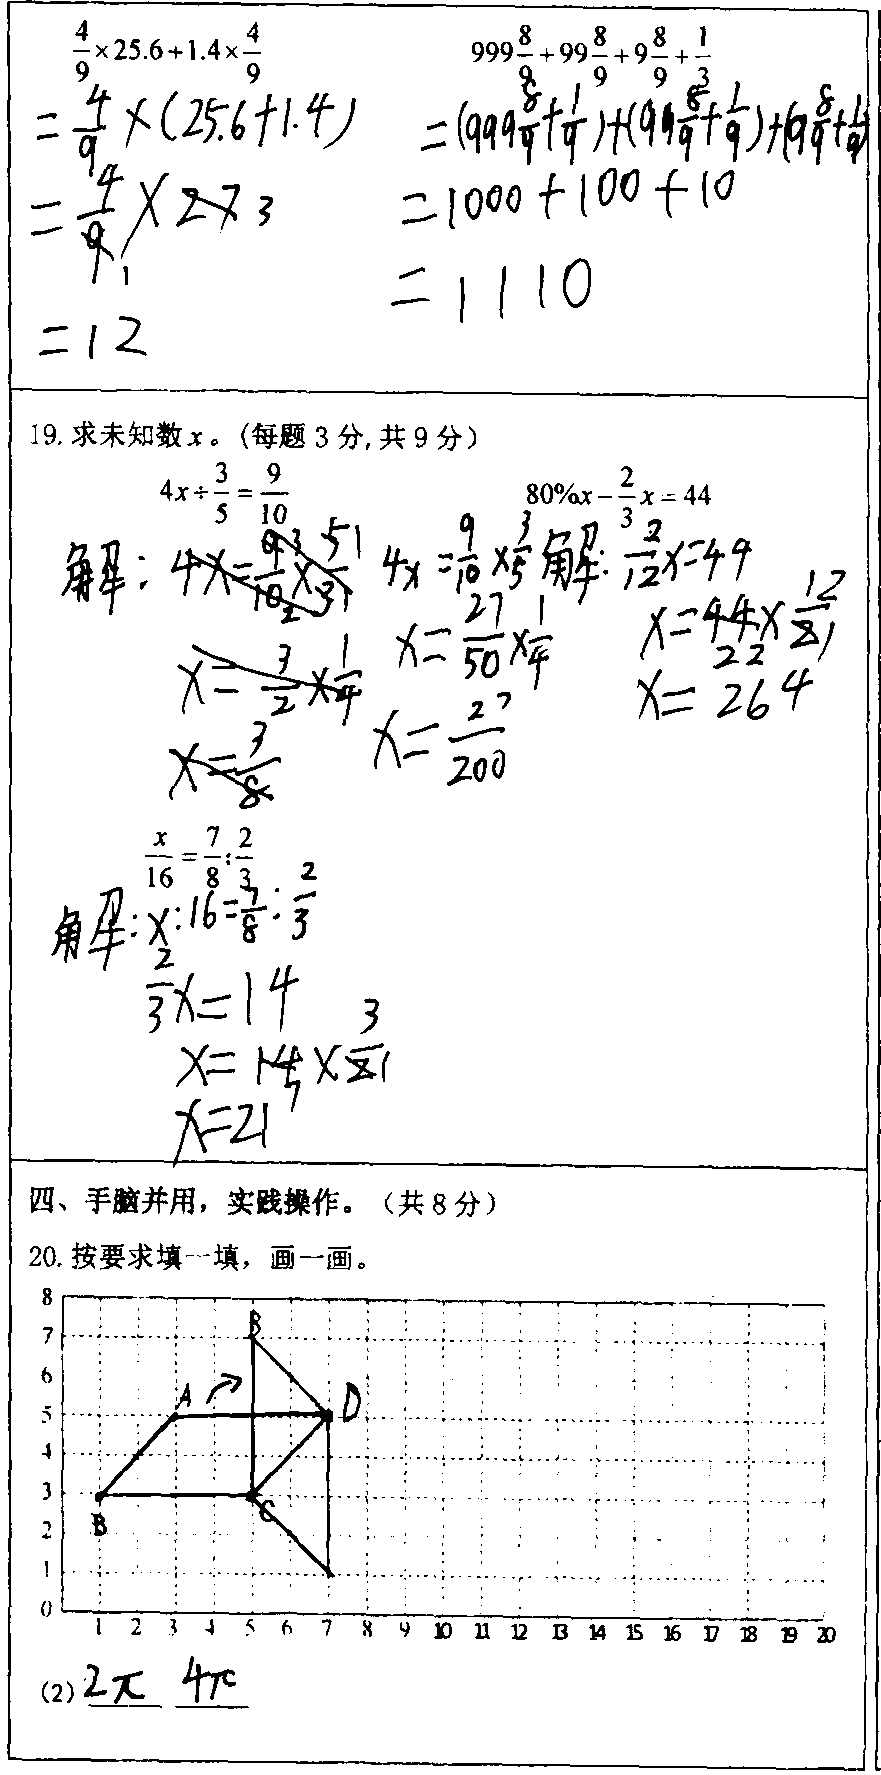 4/9×25.6+1.4×4/9
=4/9×(25.6+1.4)
=4/9×27 3
1
=12
999 8/9+99 8/9+9 8/9+1/3
=(999 8/9+1/9)+(99 8/9+1/9)+(9 8/9+1/9)
=1000+100+10
=1110
19. 求未知数 x。(每题 3 分,共 9 分)
4x÷3/5=9/10
解: 4x=9/10×5/3
x=3/2×1/4
x=3/8
4x=9/10×3/5
x=27/50×1/4
x=27/200
80%x-2/3x=44
解: 2/12x=44
x=44×12/2
22 1
x=264
x/16=7/8:2/3
解: x:16=7/8:2/3
2/3x=14
x=14×3/2
7 1
x=21
四、手脑并用，实践操作。（共 8 分）
20. 按要求填一填，画一画。
8
7
6
5
4
3
2
1
0
B
A
D
B
C
1 2 3 4 5 6 7 8 9 10 11 12 13 14 15 16 17 18 19 20
(2) 2π 4π